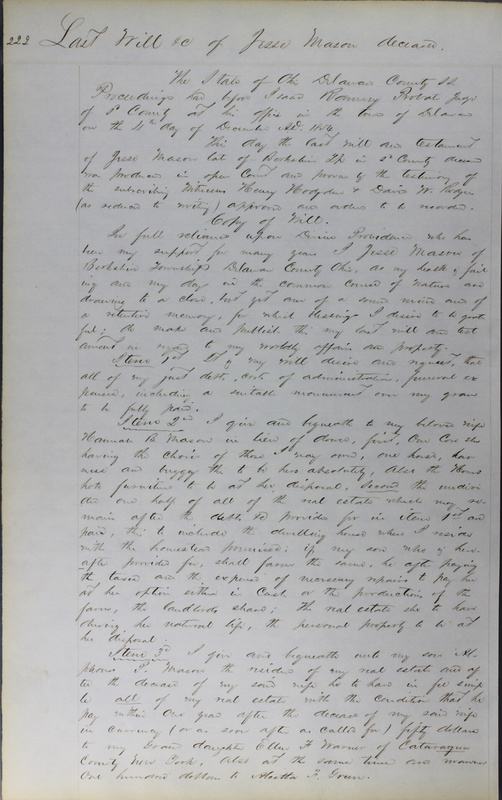 223 Last Will &c of Jesse Mason deceased.
The State of Ohio Delaware County SS
Proceedings had before Isaac Ranney Probate Judge
of sd County at his office in the town of Delaware
on the 4th day of December AD. 1854.
This day the last will and testament
of Jesse Mason late of Berkshire Tp in sd County deceased
was produced in open Court and proven by the testimony of
the subscribing Witnesses Henry Hodgden & David W.
(as reduced to writing) approved and ordered to be recorded.
Copy of Will.
In full reliance upon Divine Providence who has
been my support for many years I Jesse Mason of
Berkshire Township Delaware County Ohio, as my health is fail
ing and my days in the common course of nature are
drawing to a close, but yet am of a sound mind and of
a retentive memory, for which blessings I desire to be grate
ful; do make and publish this my last will and test
ament in regard to my worldly affairs and property.
Item 1st It is my will desire and request, that
all of my just debts, costs of administration, funeral ex
penses, including a suitable monument over my grave
to be fully paid.
Item 2nd I give and bequeath to my beloved wife
Hannah B. Mason in lieu of dower, first, One Cow she
having the choice of those I may own, one horse, har
ness and buggy the to be hers absolutely, Also the House
hold furniture to be at her disposal. Second the undivi
ded one half of all of the real estate which may re-
main after the debts &c provided for in item 1st are
paid, this to include the dwelling house where I reside
with the homestead premises; if my son who is here-
after provided for, shall farm the same, he after paying
the taxes and the expense of necessary repairs to pay her
at her option either in Cash or the productions of the
farm, the landlords share; the real estate she to have
during her natural life, the personal property to be at
her disposal.
Item 3d I give and bequeath unto my son Al
phonso P. Mason the residue of my real estate and af
ter the decease of my said wife he to have in fee simp
le all of my real estate with the condition that he
pay within One year after the decease of my said wife
in currency (or as soon after as called for) fifty dollars
to my Grand daughter Ellen F Warner of Cataraugus
County New York, Also at the same time and manner
One hundred dollars to F. Green.